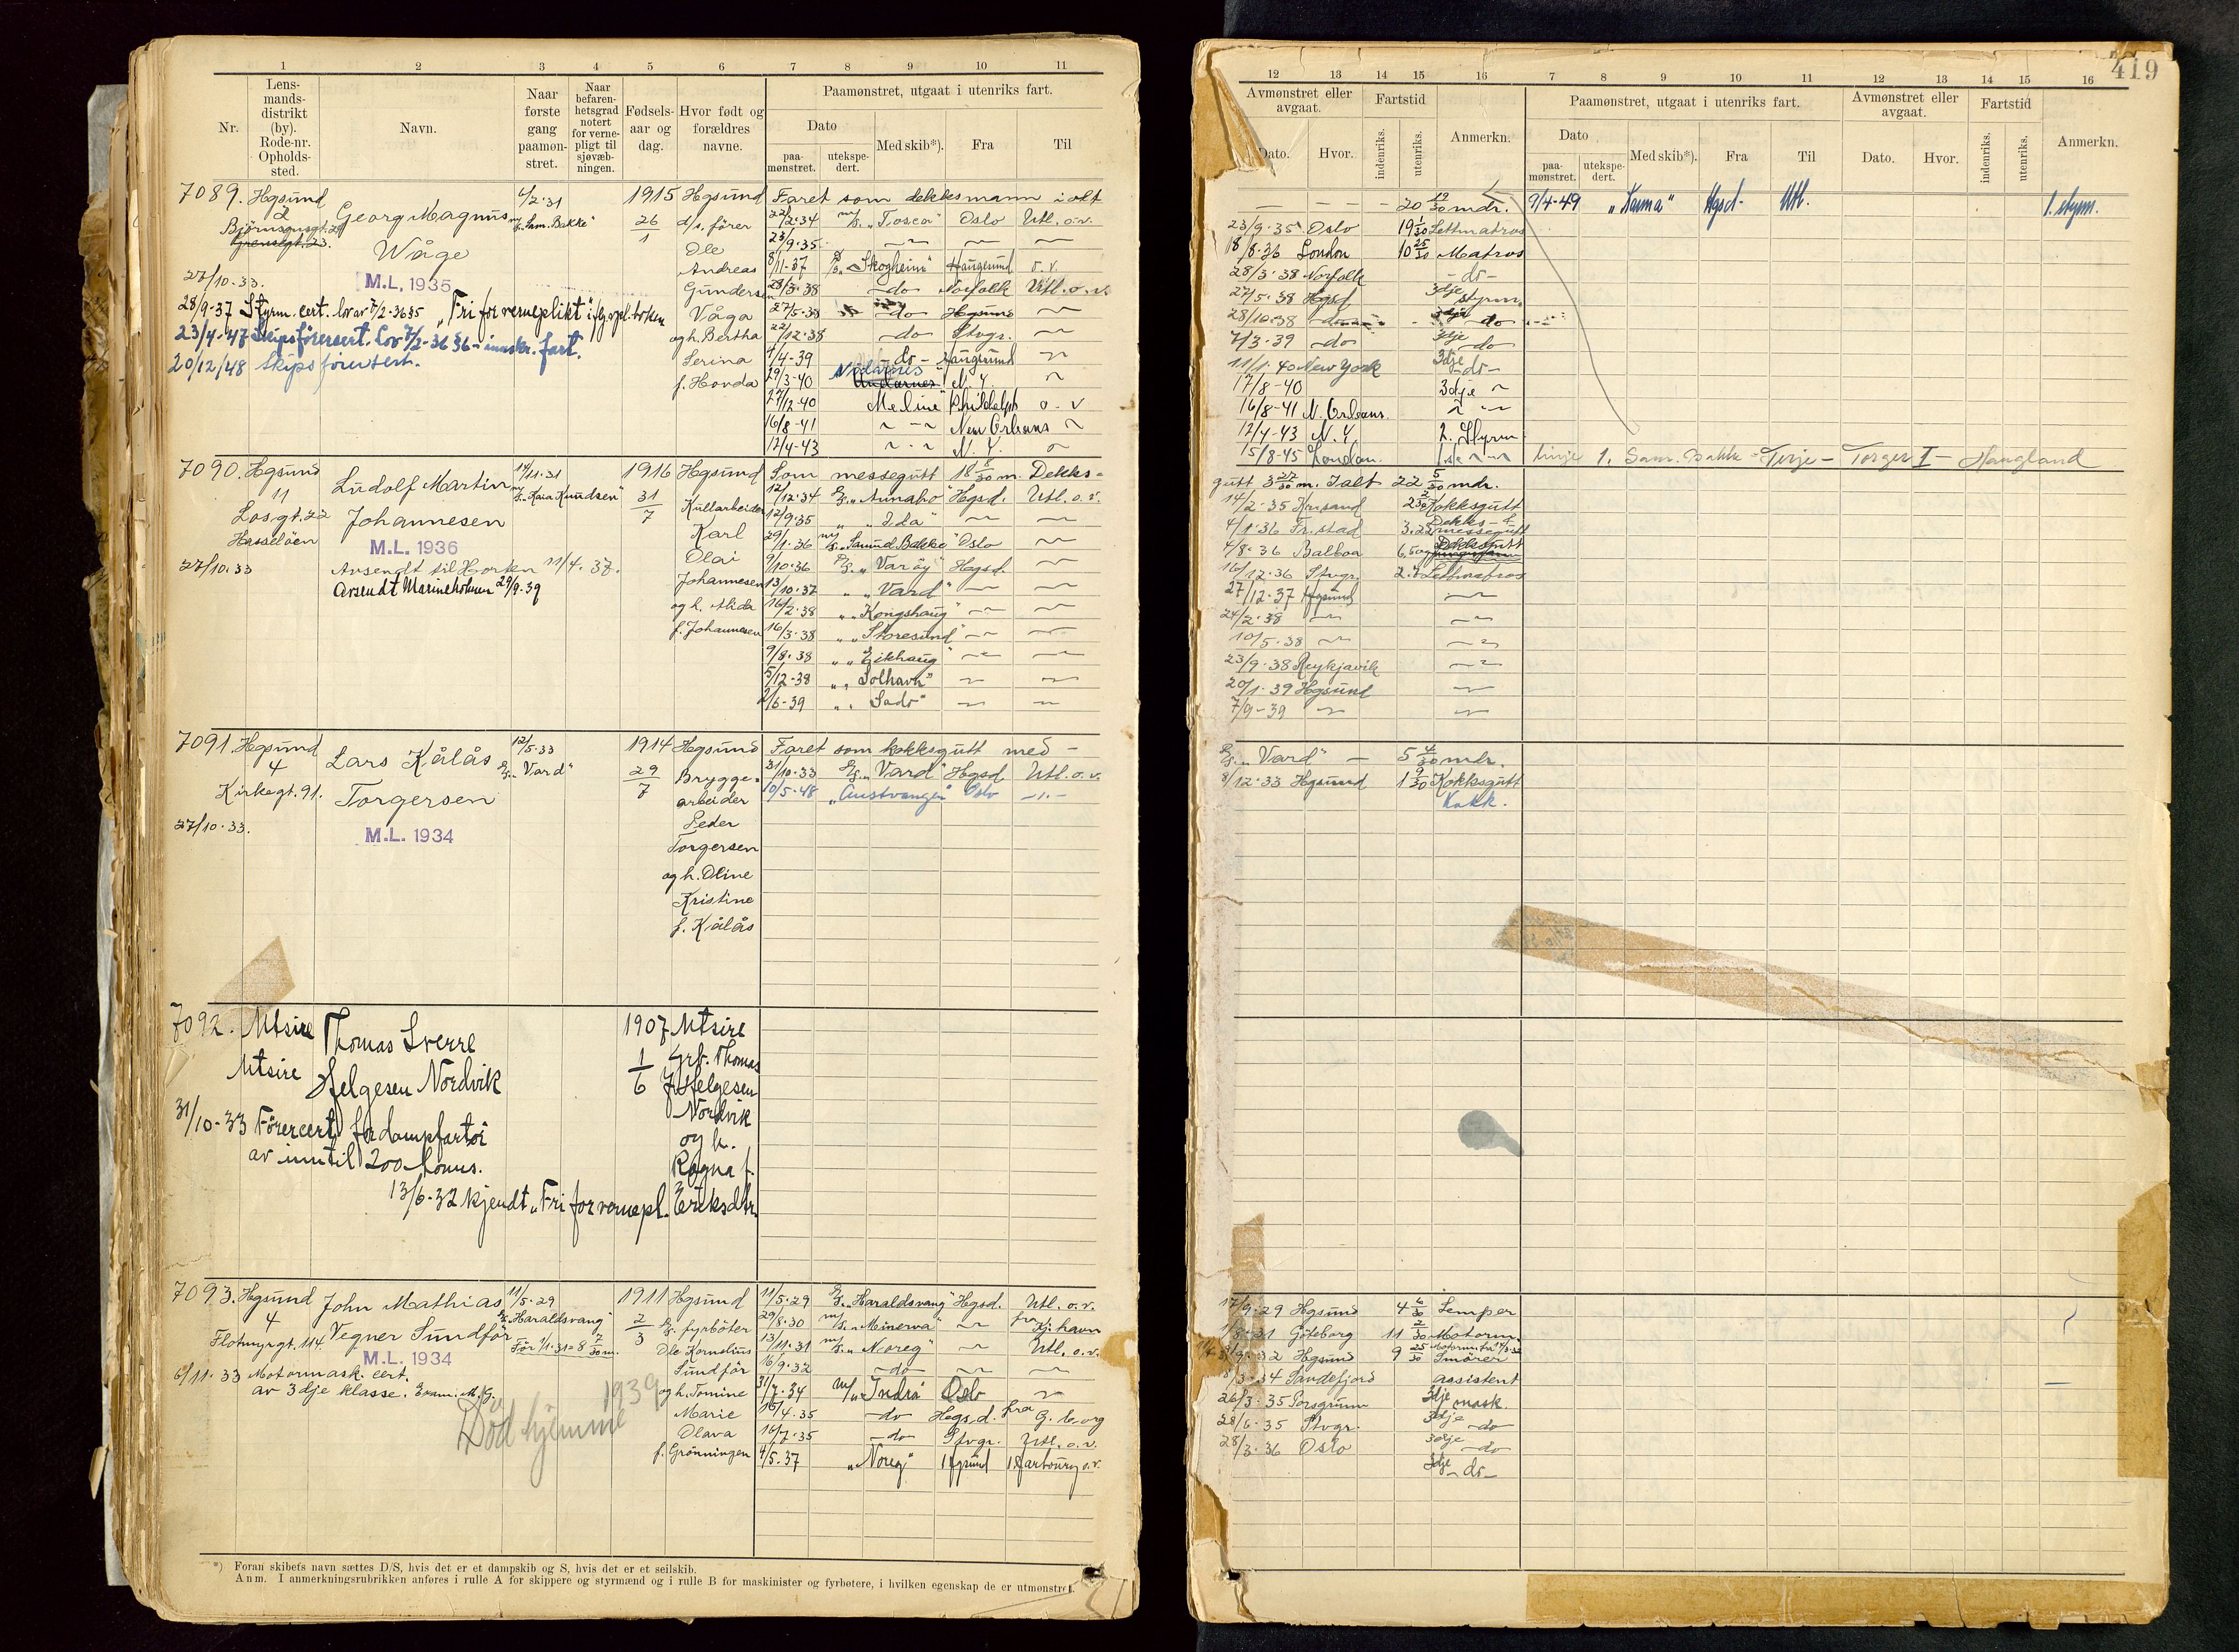 419
1 2 3 4 5 6 7 8 9 10 11
Nr.
Lens-
mands-
distrikt
(by).
Rode-nr.
Opholds-
sted.
Navn.
Naar
første
gang
paamøn-
stret.
Naar
befaren-
hetsgrad
notert
for verne-
pligt til
sjøvæb-
ningen.
Fødsels-
aar og
dag.
Hvor født og
forældres
navne.
Paamønstret, utgaat i utenriks fart.
Dato
paa-
mønstret.
utekspe-
dert.
Med skib*).
Fra
Til
7089. Hgsund
2
Georg Magnus
Wåge
M.L. 1935
27/10-33.
6/2-31
"Sam. Bakke"
1915
26/1
Hgsund
d/s. fører
Ole
Andreas
Gundersen
Våga
og h. Bertha
Serina
f. Hovda
28/9-37 Styrm. cert. lov av 7/2-36 §5 "Fri for verneplikt"
23/4-47 Skipsførercert. Lov 7/2-36 §6 - innskr. fart.
20/12/48 Skipsførercert.
Faret som dekksmann i alt
22/2-34 m/s. "Tosca" Oslo Utl. o.v.
23/9-35
8/11-37 "Skogheim" Haugesund o.v.
28/3-38 do Norfolk Utl. o.v.
27/5-38 do Hgsund
22/12-38 do Stvgr.
4/4-39 do - Haugesund
29/3-40 N.Y.
27/12-40 Meline" Philadelph o.v
16/8-41 New Orleans
12/4-43 N.Y.
7090. Hgsund
11
Losgt. 22
Hasseløen
27/10-33
Ludolf Martin
Johannesen
M.L. 1936
Avsendt til Horten 11/4-37.
Avsendt Marineholmen 29/9-39
14/11-31
"Kaia Knudsen"
1916
31/7
Hgsund
Kullarbeider
Karl
Olai
Johannesen
og h. Alida
f. Johannesen
Som messegutt 18 8/30 m. Dekks-
12/12-34 D/S. "Annaho" Hgsd. Utl. o.v.
12/9-35 " "Ida"
29/1-36 m/s. "Samuel Bakke" Oslo
9/10-36 D/S. "Varøy" Hgsd.
13/10-37 " "Vard"
16/2-38 " "Kongshaug"
16/3-38 " "Storesund"
9/8-38 " "Eikhaug"
5/12-38 " "Solhavn"
2/6-39 " "Sado"
7091. Hgsund
4
Kirkegt. 91.
27/10-33.
Lars Kålås
Torgersen
M.L. 1934
12/5-33
D/S. "Vard"
1914
29/7
Hgsund
Brygge-
arbeider
Peder
Torgersen
og h. Oline
Kristine
f. Kålås
Faret som kokksgutt med -
31/10-33 D/S. "Vard" Hgsd Utl. o.v.
10/5-48 "Austvangen" Oslo
7092. Utsire
Utsire
Thomas Sverre
Helgesen Nordvik
31/10-33 Førercert. for dampfartøi
av inntil 200 tonns.
13/6-32 kjendt "Fri for vernepl.
1907
1/6
Utsire
Thomas
Helgesen
Nordvik
og h.
Ragna f.
Eriksdtr.
7093. Hgsund
4
Flotmyrgt. 114.
John Mathias
Vegner Sundför
M.L. 1934
6/11-33 Motormask. cert.
av 3dje klasse. Exam. M.G.
Död hjemme 1939
11/5-29
"Haraldsvang"
Før 1/1-31 = 8 7/30 m.
1911
2/3
Hgsund
D/S. fyrbøter
Ole Kornelius
Sundför
og h. Tomine
Marie
Olava
f. Grønningen
11/5-29 D/S. "Haraldsvang" Hgsd. Utl. o.v.
29/8-30 m/s. "Minerva" fra Kj. havn
13/11-31 m/s. "Noreg" Utl. o.v.
16/9-32 do
31/7-34 m/s "Indra" Oslo
16/4-35 do Hegsd. fra G.borg
16/7-35 do Stvgr. Utl. o.v.
4/5-37 "Noreg" Hgsund Harburg o.v.
*) Foran skibets navn sættes D/S, hvis det er et dampskib og S, hvis det er et seilskib.
Anm. I anmerkningsrubrikken anføres i rulle A for skippere og styrmænd og i rulle B for maskinister og fyrbøtere, i hvilken egenskap de er utmønstret.
12 13 14 15 16 7 8 9 10 11 12 13 14 15 16
Avmønstret eller
avgaat.
Dato.
Hvor.
Fartstid
indenriks.
utenriks.
Anmerkn.
Paamønstret, utgaat i utenriks fart.
Dato
paa-
mønstret.
utekspe-
dert.
Med skib*).
Fra
Til
Avmønstret eller
avgaat.
Dato.
Hvor.
Fartstid
indenriks.
utenriks.
Anmerkn.
20 19/30 mdr. 9/4-49 "Karma" Hgsd. Utl. 1. styrm.
23/9-35 Oslo 19 1/30 Lettmatros
18/8-36 London 10 25/30 Matros
28/3-38 Norfolk - do -
27/5-38 Hgsd 3dje styrm.
28/10-38 do
7/3-39 do 3dje do
11/1-40 New York 3dje do
17/8-40 3dje
16/8-41 N. Orleans.
12/4-43 N.Y. 2. Styrm
15/8-45 London 1ste
linje 1. Sam. Bakke - Terje - Torger I - Haugland
gutt 3 27/30 m. Ialt 22 5/30 mdr.
14/2-35 Krisand Kokksgutt
4/1-36 Fr.stad Dekks- & messegutt
4/8-36 Balboa Dekksgutt
16/12-36 Stvgr. Lettmatros
27/12-37 Hgsund
24/2-38
10/5-38
23/9-38 Reykjavik
20/1-39 Hgsund
7/9-39
D/S. "Vard" - 5 4/30 mdr.
8/12-33 Hgsund 1 9/30 Kokksgutt
Kokk.
17/9-29 Hgsund 4 6/30 Lemper
1/8-31 Göteborg 11 2/30 Motorm.
9/9-32 Hgsund 9 25/30 Smører
8/3-34 Sandefjord assistent
26/3-35 Porsgrunn 3dje mask.
28/6-35 Stvgr. 3dje do
28/3-36 Oslo 3dje do
3dje do